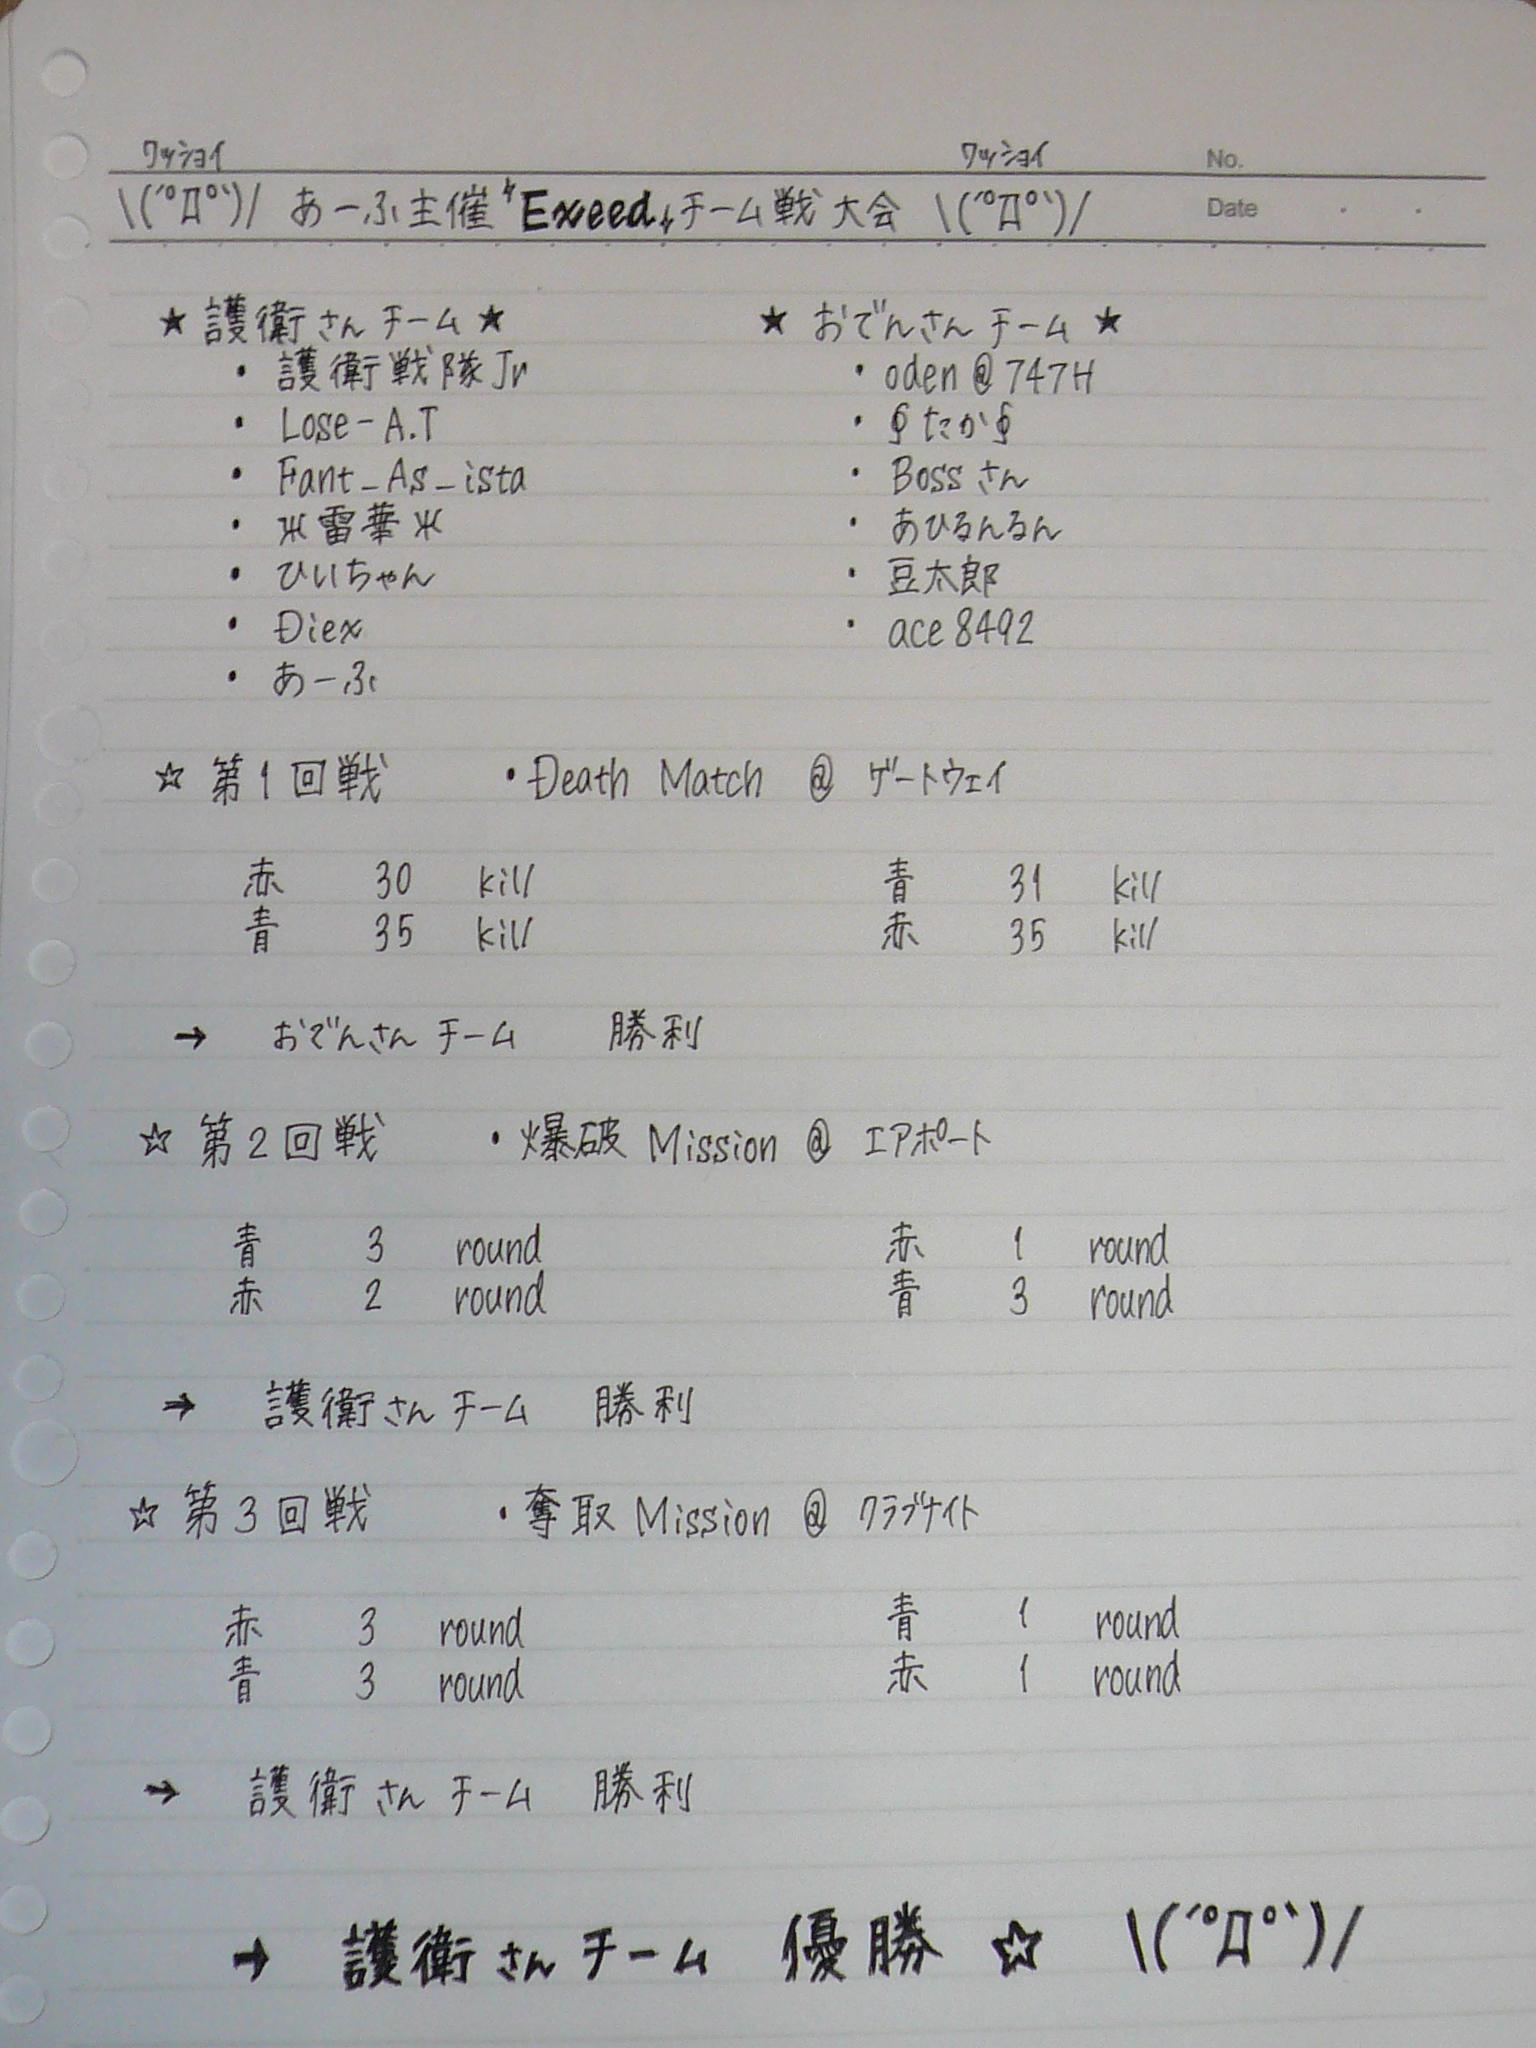 ワッショイ ワッショイ No.
\(´゚Д゚`)/ あーふ主催 ϟExeedϟ チーム戦 大会 \(´゚Д゚`)/ Date
★ 護衛さんチーム ★ ★ おでんさんチーム ★
・ 護衛戦隊Jr ・ oden@747H
・ Lose-A.T ・ ∮たか∮
・ Fant_As_ista ・ Bossさん
・ ж雷華ж ・ あひるんるん
・ ひいちゃん ・ 豆太郎
・ Điex ・ ace8492
・ あーふ
☆ 第1回戦 ・Đeath Match @ ゲートウェイ
赤 30 kill 青 31 kill
青 35 kill 赤 35 kill
→ おでんさんチーム 勝利
☆ 第2回戦 ・爆破 Mission @ エアポート
青 3 round 赤 1 round
赤 2 round 青 3 round
→ 護衛さんチーム 勝利
☆ 第3回戦 ・奪取 Mission @ クラブナイト
赤 3 round 青 1 round
青 3 round 赤 1 round
→ 護衛さんチーム 勝利
→ 護衛さんチーム 優勝 ☆ \(´゚Д゚`)/